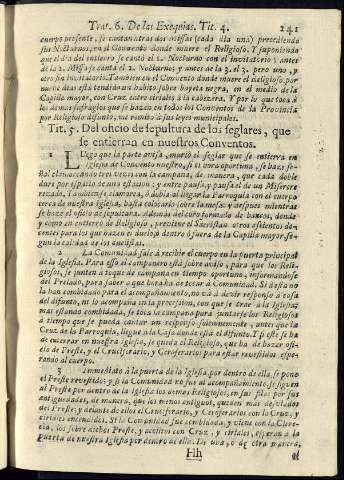 Trat. 6. De las Exequias. Tit. 4. 241
cuerpo presente, se cantan otras dos Missas (cada dia una) precediendo
sus Nocturnos, en el Convento donde muere el Religioso. Y suponiendo
que el dia del entierro se cantò el 1. Nocturno con el invitatorio; antes
de la 2. Missa se canta el 2. Nocturno; y antes de la 3. el 3. pero uno, y
otro sin invitatorio. Tambien en el Convento donde muere el Religioso, por
nueve dias està tendido un habito sobre bayeta negra, en el medio de la
Capilla mayor, con Cruz, entre ciriales à la cabezera. Y por lo que toca à
los demas sufragios que se hazen en todos los Conventos de la Provincia
por Religioso difunto, me remito à sus leyes municipales.
Tit. 5. Del oficio de sepultura de los seglares, que
se entierran en nuestros Conventos.
1 LUego que la parte avisa, muriò el seglar que se entierra en
Iglesia de Convento nuestro, si es hora oportuna, se haze se-
ñal clamoreando tres vezes con la campana, de manera, que cada doble
dure por espacio de una estacion: y entre pausa, y pausa el de un Miserere
rezado. Tambien se clamorea, ò dobla al llegar la Parroquia con el cuerpo
cerca de nuestra Iglesia, hasta colocarlo sobre la mesa: y despues mientras
se haze el oficio de sepultura. Ademàs del coro formado de bancos, donde
y como en entierro de Religioso, previene el Sacristan otros assientos de-
centes para los que hazen el duelo, dentro ò fuera de la Capilla mayor, se-
gun la calidad de los duelistas.
2 La Comunidad sale à recibir el cuerpo en la puerta principal
de la Iglesia. Para esso el campanero està sobre aviso, para que los Reli-
giosos, se junten à toque de campana en tiempo oportuno, informandose
del Prelado, para saber à que hora ha de tocar à Comunidad. Si èsta no
la han combidado para el acompañamiento, no và à dezir responso à casa
del difunto, ni lo acompaña en la procession, con que se trae à la Iglesia:
mas estando combidada, se toca la campana para juntarse los Religiosos
à tiempo que se pueda cantar un responso solemnemente, antes que la
Cruz de la Parroquia, llegue à la Casa donde està el difunto. Y si este se ha
de enterrar en nuestra Iglesia, se queda el Religioso, que ha de hazer ofi-
cio de Preste, y el Cruciferario, y Ceroferarios para estar revestidos espe-
rando al cuerpo.
3 Immediato à la puerta de la Iglesia, por dentro de ella, se pone
el Preste revestido: y si la Comunidad no fue al acompañamiento, se siguen
al Preste por dentro de la Iglesia los demas Religiosos, en sus filas por sus
antiguedades, de manera, que los menos antiguos, queden mas desviados
del Preste: y delante de ellos el Cruciferario, y Ceroferarios con la Cruz, y
ciriales encendidos. Si la Comunidad fue combidada, y viene con la Clere-
cia, los sobre dichos Preste, y acolitos con Cruz, y ciriales, esperan à la
puerta de nuestra Iglesia por dentro de ella. De una, ò de otra manera,
Hh al